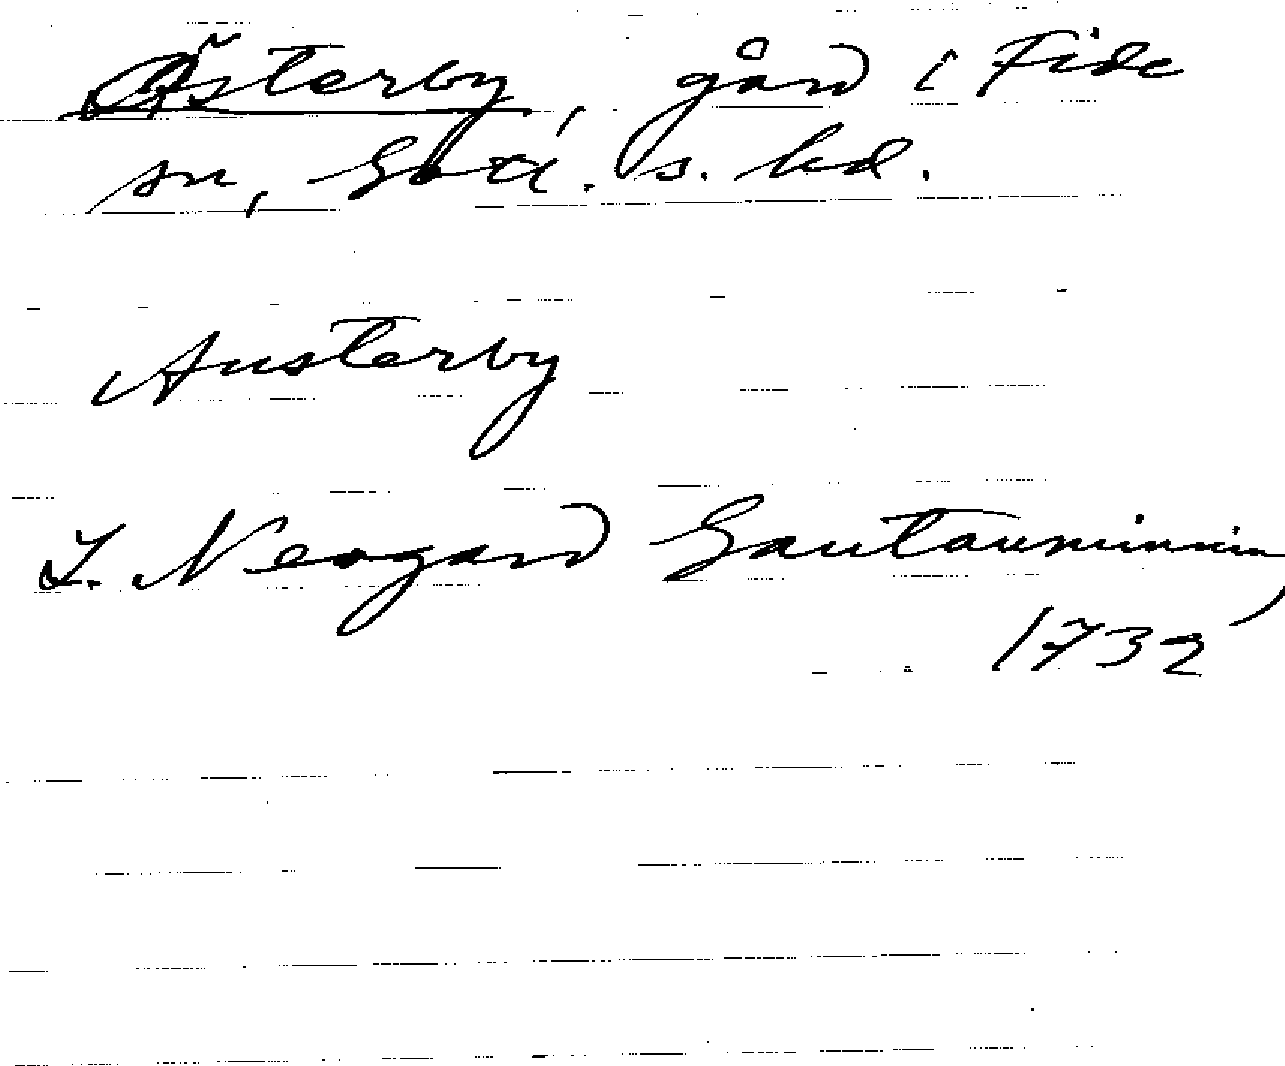 Österby, gård i Fide
sn, Gotl. s. hd.
Austerby
J. Neogard Gautauminning
1732